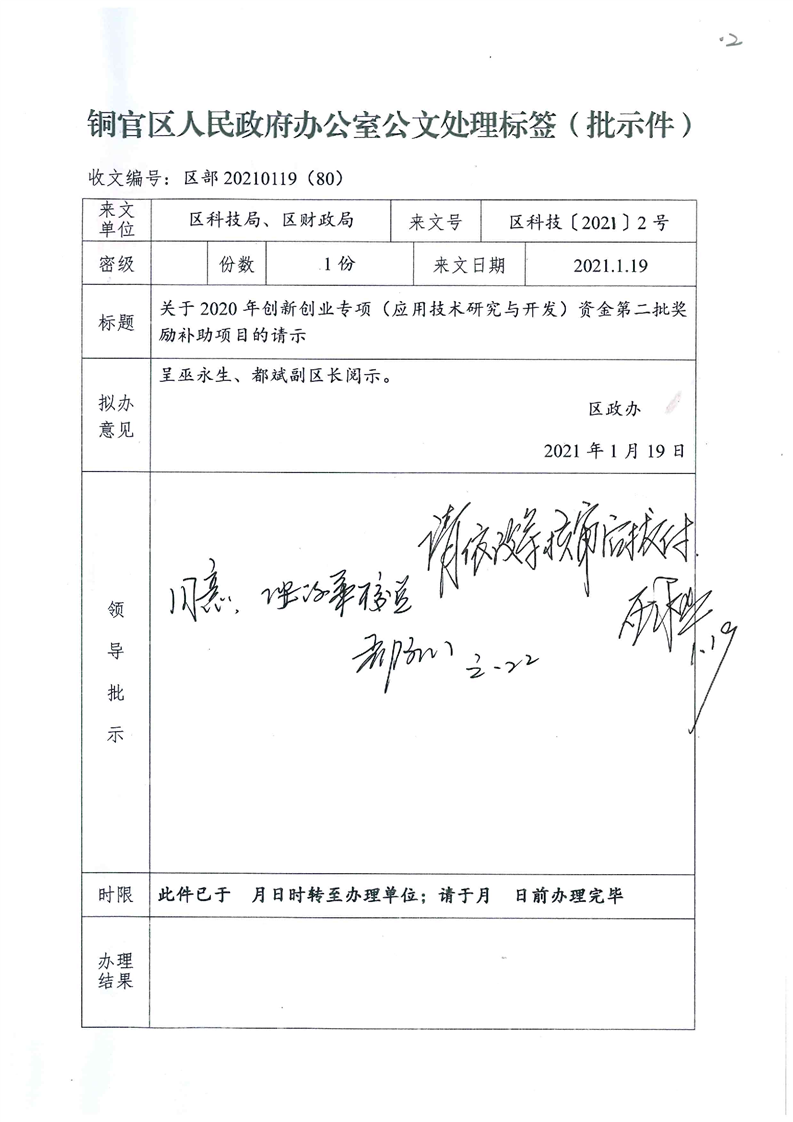 ·2
铜官区人民政府办公室公文处理标签（批示件）
收文编号：区部 20210119（80）
来文单位 区科技局、区财政局 来文号 区科技〔2021〕2 号
密级 份数 1 份 来文日期 2021.1.19
标题 关于 2020 年创新创业专项（应用技术研究与开发）资金第二批奖
励补助项目的请示
拟办意见 呈巫永生、都斌副区长阅示。
区政办
2021 年 1 月 19 日
领导批示
请依政策核审后拨付.
同意，
1.19
2.22
时限 此件已于 月日时转至办理单位；请于月 日前办理完毕
办理结果